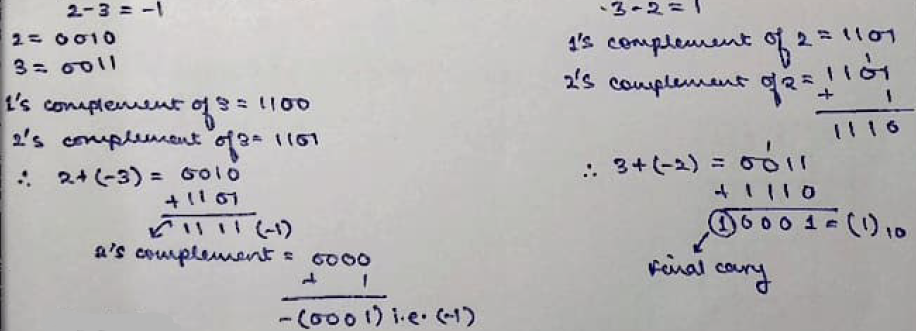 2-3 = -1
2 = 0010
3 = 0011
1's complement of 3 = 1100
2's complement of 3 = 1101
∴ 2+(-3) = 0010
+1101
1111 (-1)
2's complement = 0000
+ 1
-(0001) i.e. (-1)
3-2 = 1
1's complement of 2 = 1101
1
2's complement of 2 = 1101
+ 1
1110
1
∴ 3+(-2) = 0011
+ 1110
1 0001 = (1)10
Final carry